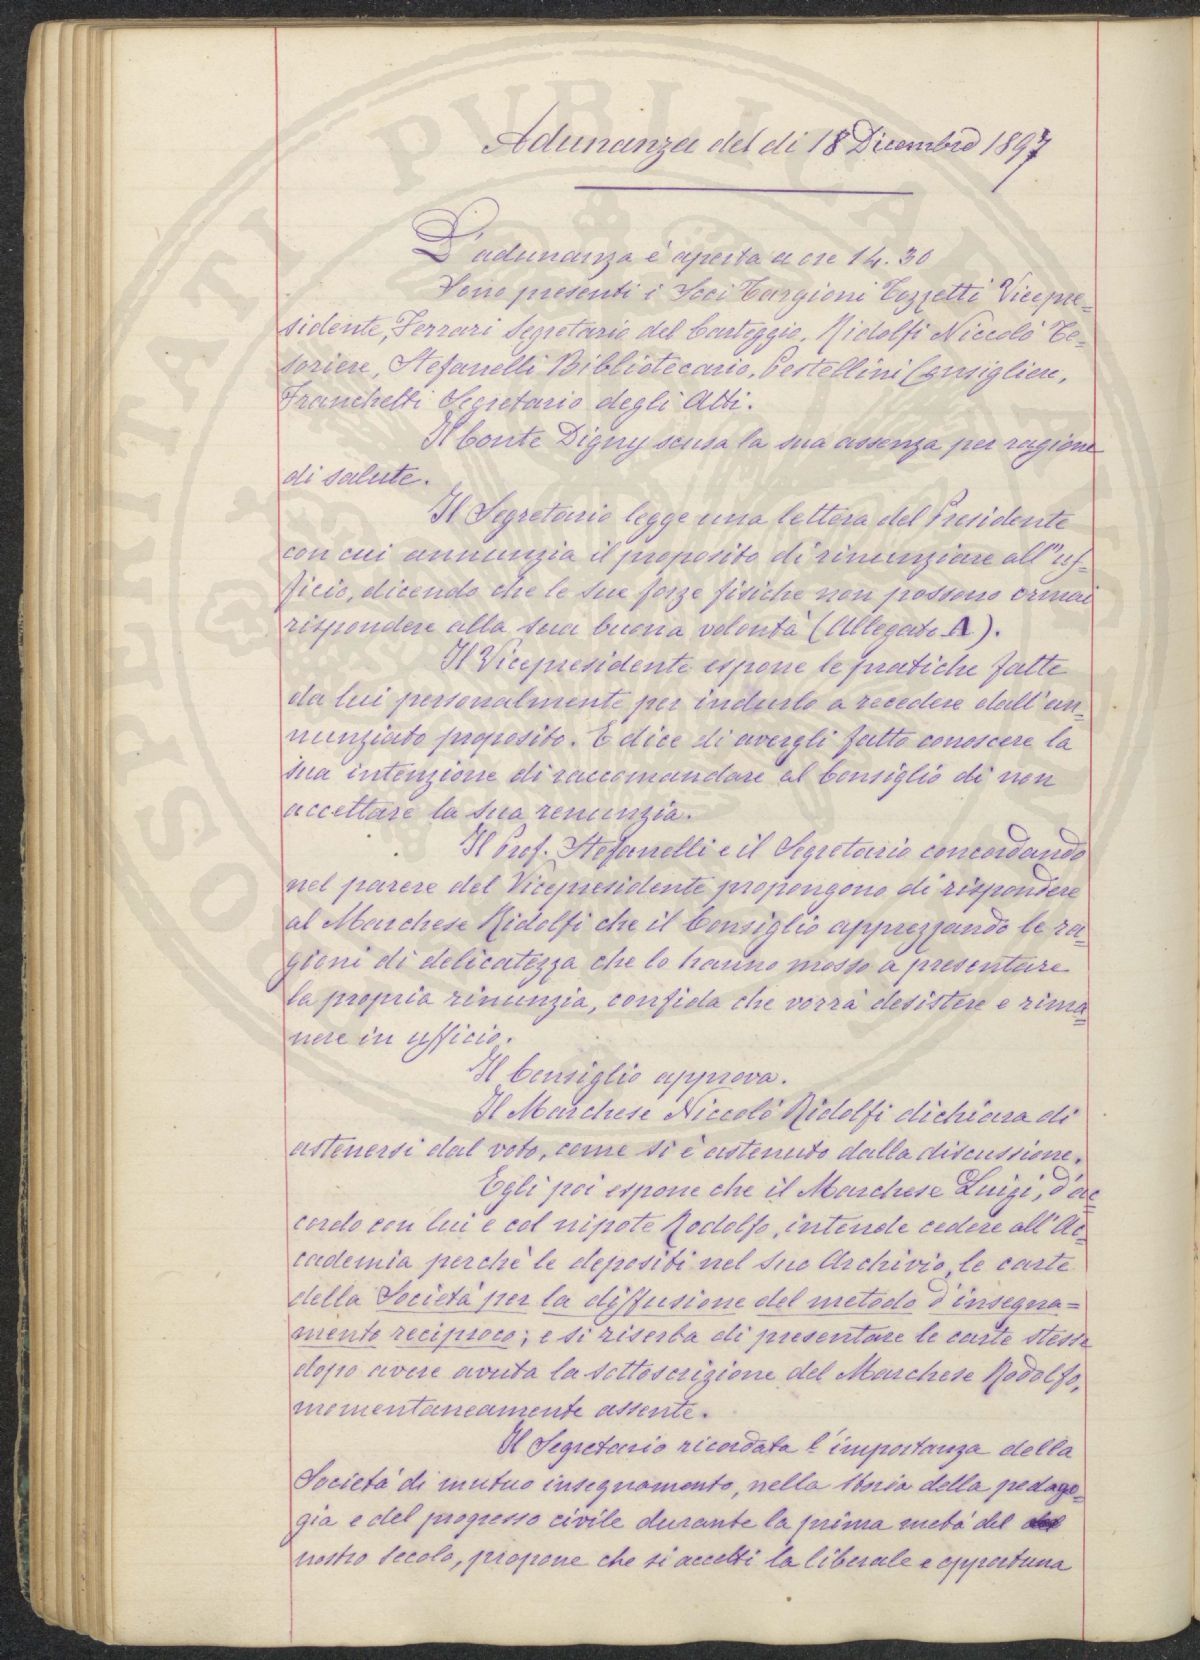 Adunanza del di 18 Dicembre 1897
L'adunanza è aperta a ore 14.30
Sono presenti i Soci Targioni Tozzetti Vicepre=
sidente, Ferrari Segretario del Carteggio, Ridolfi Niccolò Te=
soriere, Stefanelli Bibliotecario, Pestellini Consigliere,
Franchetti Segretario degli Atti.
Il Conte Digny scusa la sua assenza per ragione
di salute.
Il Segretario legge una lettera del Presidente
con cui annunzia il proposito di rinunziare all'uf=
ficio, dicendo che le sue forze fisiche non possono ormai
rispondere alla sua buona volontà (Allegato A).
Il Vicepresidente espone le pratiche fatte
da lui personalmente per indurlo a recedere dall'an=
nunziato proposito. E dice di avergli fatto conoscere la
sua intenzione di raccomandare al Consiglio di non
accettare la sua renunzia.
Il Prof. Stefanelli e il Segretario concordando
nel parere del Vicepresidente propongono di rispondere
al Marchese Ridolfi che il Consiglio apprezzando le ra=
gioni di delicatezza che lo hanno mosso a presentare
la propria rinunzia, confida che vorrà desistere e rima=
nere in ufficio.
Il Consiglio approva.
Il Marchese Niccolò Ridolfi dichiara di
astenersi dal voto, come si è astenuto dalla discussione.
Egli poi espone che il Marchese Luigi, d'ac=
cordo con lui e col nipote Rodolfo, intende cedere all'Ac=
cademia perchè le depositi nel suo Archivio, le carte
della Società per la diffusione del metodo d'insegna=
mento reciproco; e si riserba di presentare le carte stesse
dopo avere avuta la sottoscrizione del Marchese Rodolfo,
momentaneamente assente.
Il Segretario ricordata l'importanza della
Società di mutuo insegnamento, nella storia della pedago=
gia e del progresso civile durante la prima metà del
nostro secolo, propone che si accetti la liberale e opportuna